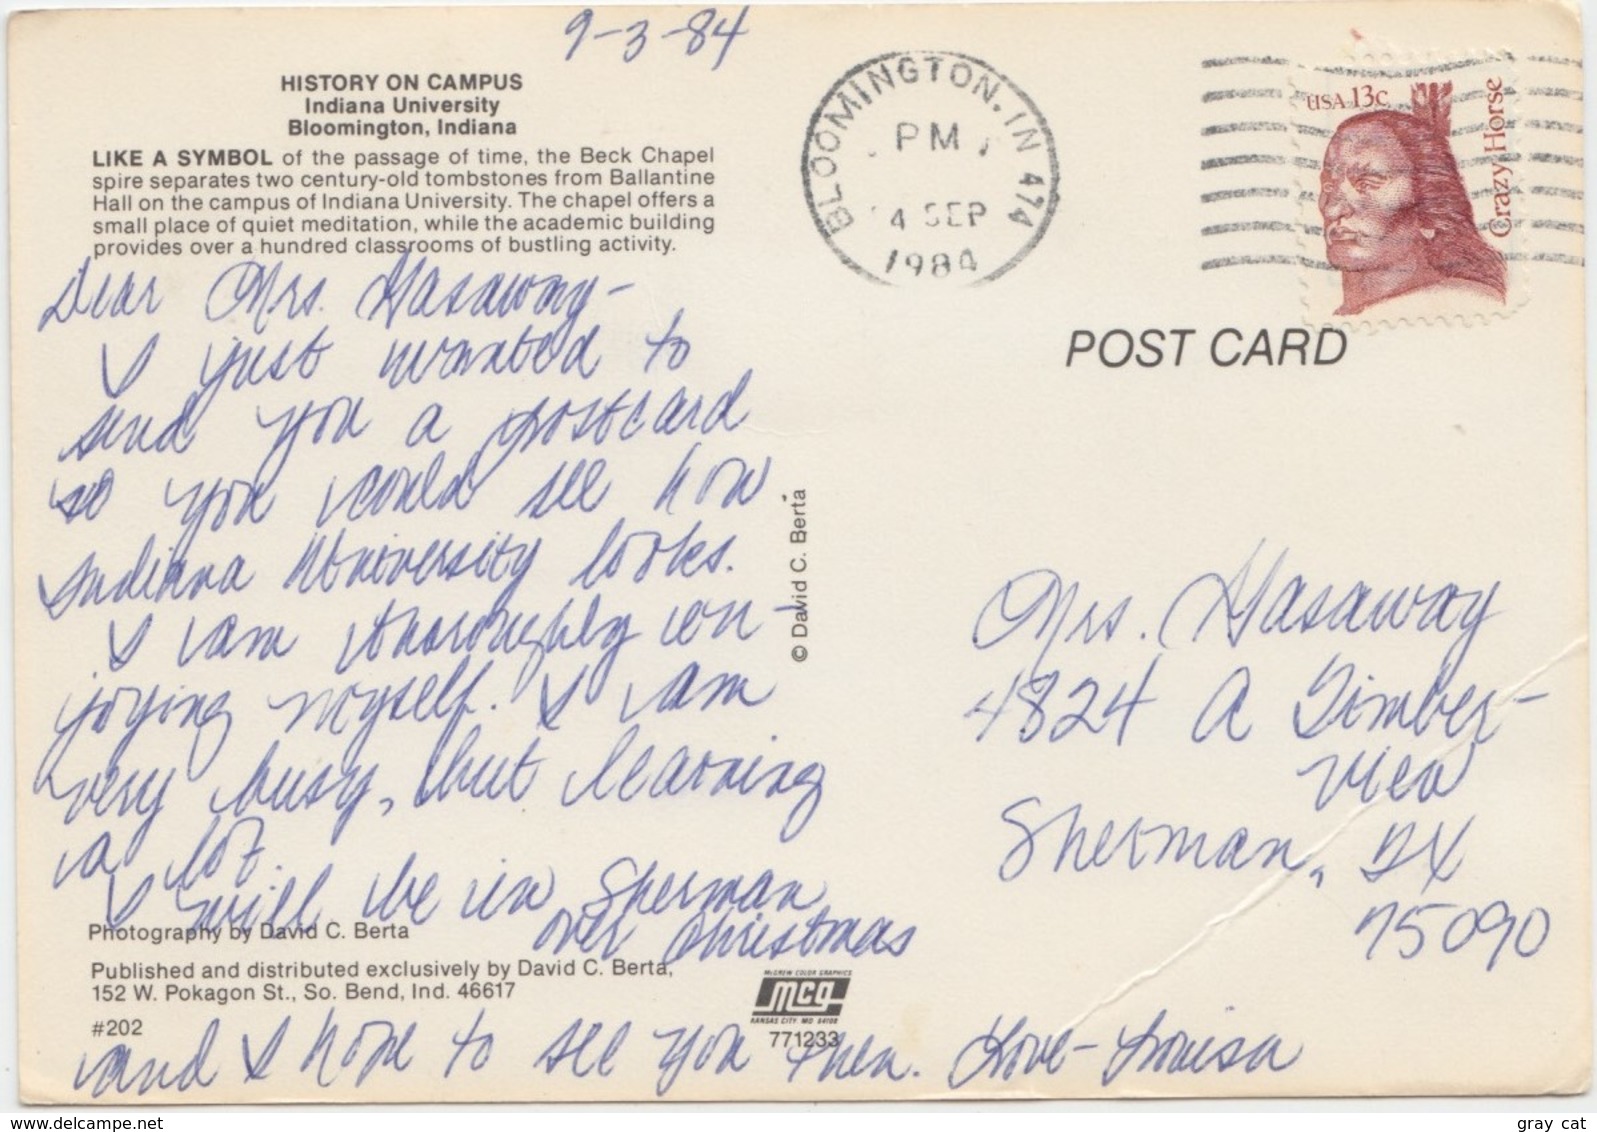 9-3-84
HISTORY ON CAMPUS
Indiana University
Bloomington, Indiana
LIKE A SYMBOL of the passage of time, the Beck Chapel
spire separates two century-old tombstones from Ballantine
Hall on the campus of Indiana University. The chapel offers a
small place of quiet meditation, while the academic building
provides over a hundred classrooms of bustling activity.
Dear Mrs. Hasaway-
I just wanted to
send you a postcard
so you could see how
Indiana University looks.
I am thoroughly en-
joying myself. I am
very busy, but learning
a lot.
I will be in Sherman
over Christmas
and I hope to see you then. Love- Louisa
Photography by David C. Berta
Published and distributed exclusively by David C. Berta,
152 W. Pokagon St., So. Bend, Ind. 46617
#202
McGREW COLOR GRAPHICS
mcg
KANSAS CITY, MO 64108
771233
© David C. Berta
BLOOMINGTON, IN 474
PM
4 SEP
1984
USA 13c
Crazy Horse
POST CARD
Mrs. Hasaway
4824 A Timber-
view
Sherman, TX
75090
www.delcampe.net
gray cat